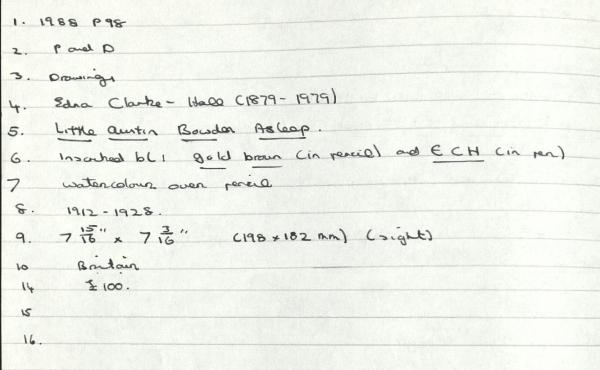 1. 1988 P98
2. P and D
3. Drawings
4. Edna Clarke - Hall (1879 - 1979)
5. Little Austin Bowden Asleep.
6. Inscribed bl: gold brown (in pencil) and E C H (in pen)
7 watercolour over pencil
8. 1912 - 1928.
9. 7 15/16" x 7 3/16" (198 x 182 mm) (sight)
10 Britain
14 £100.
15
16.